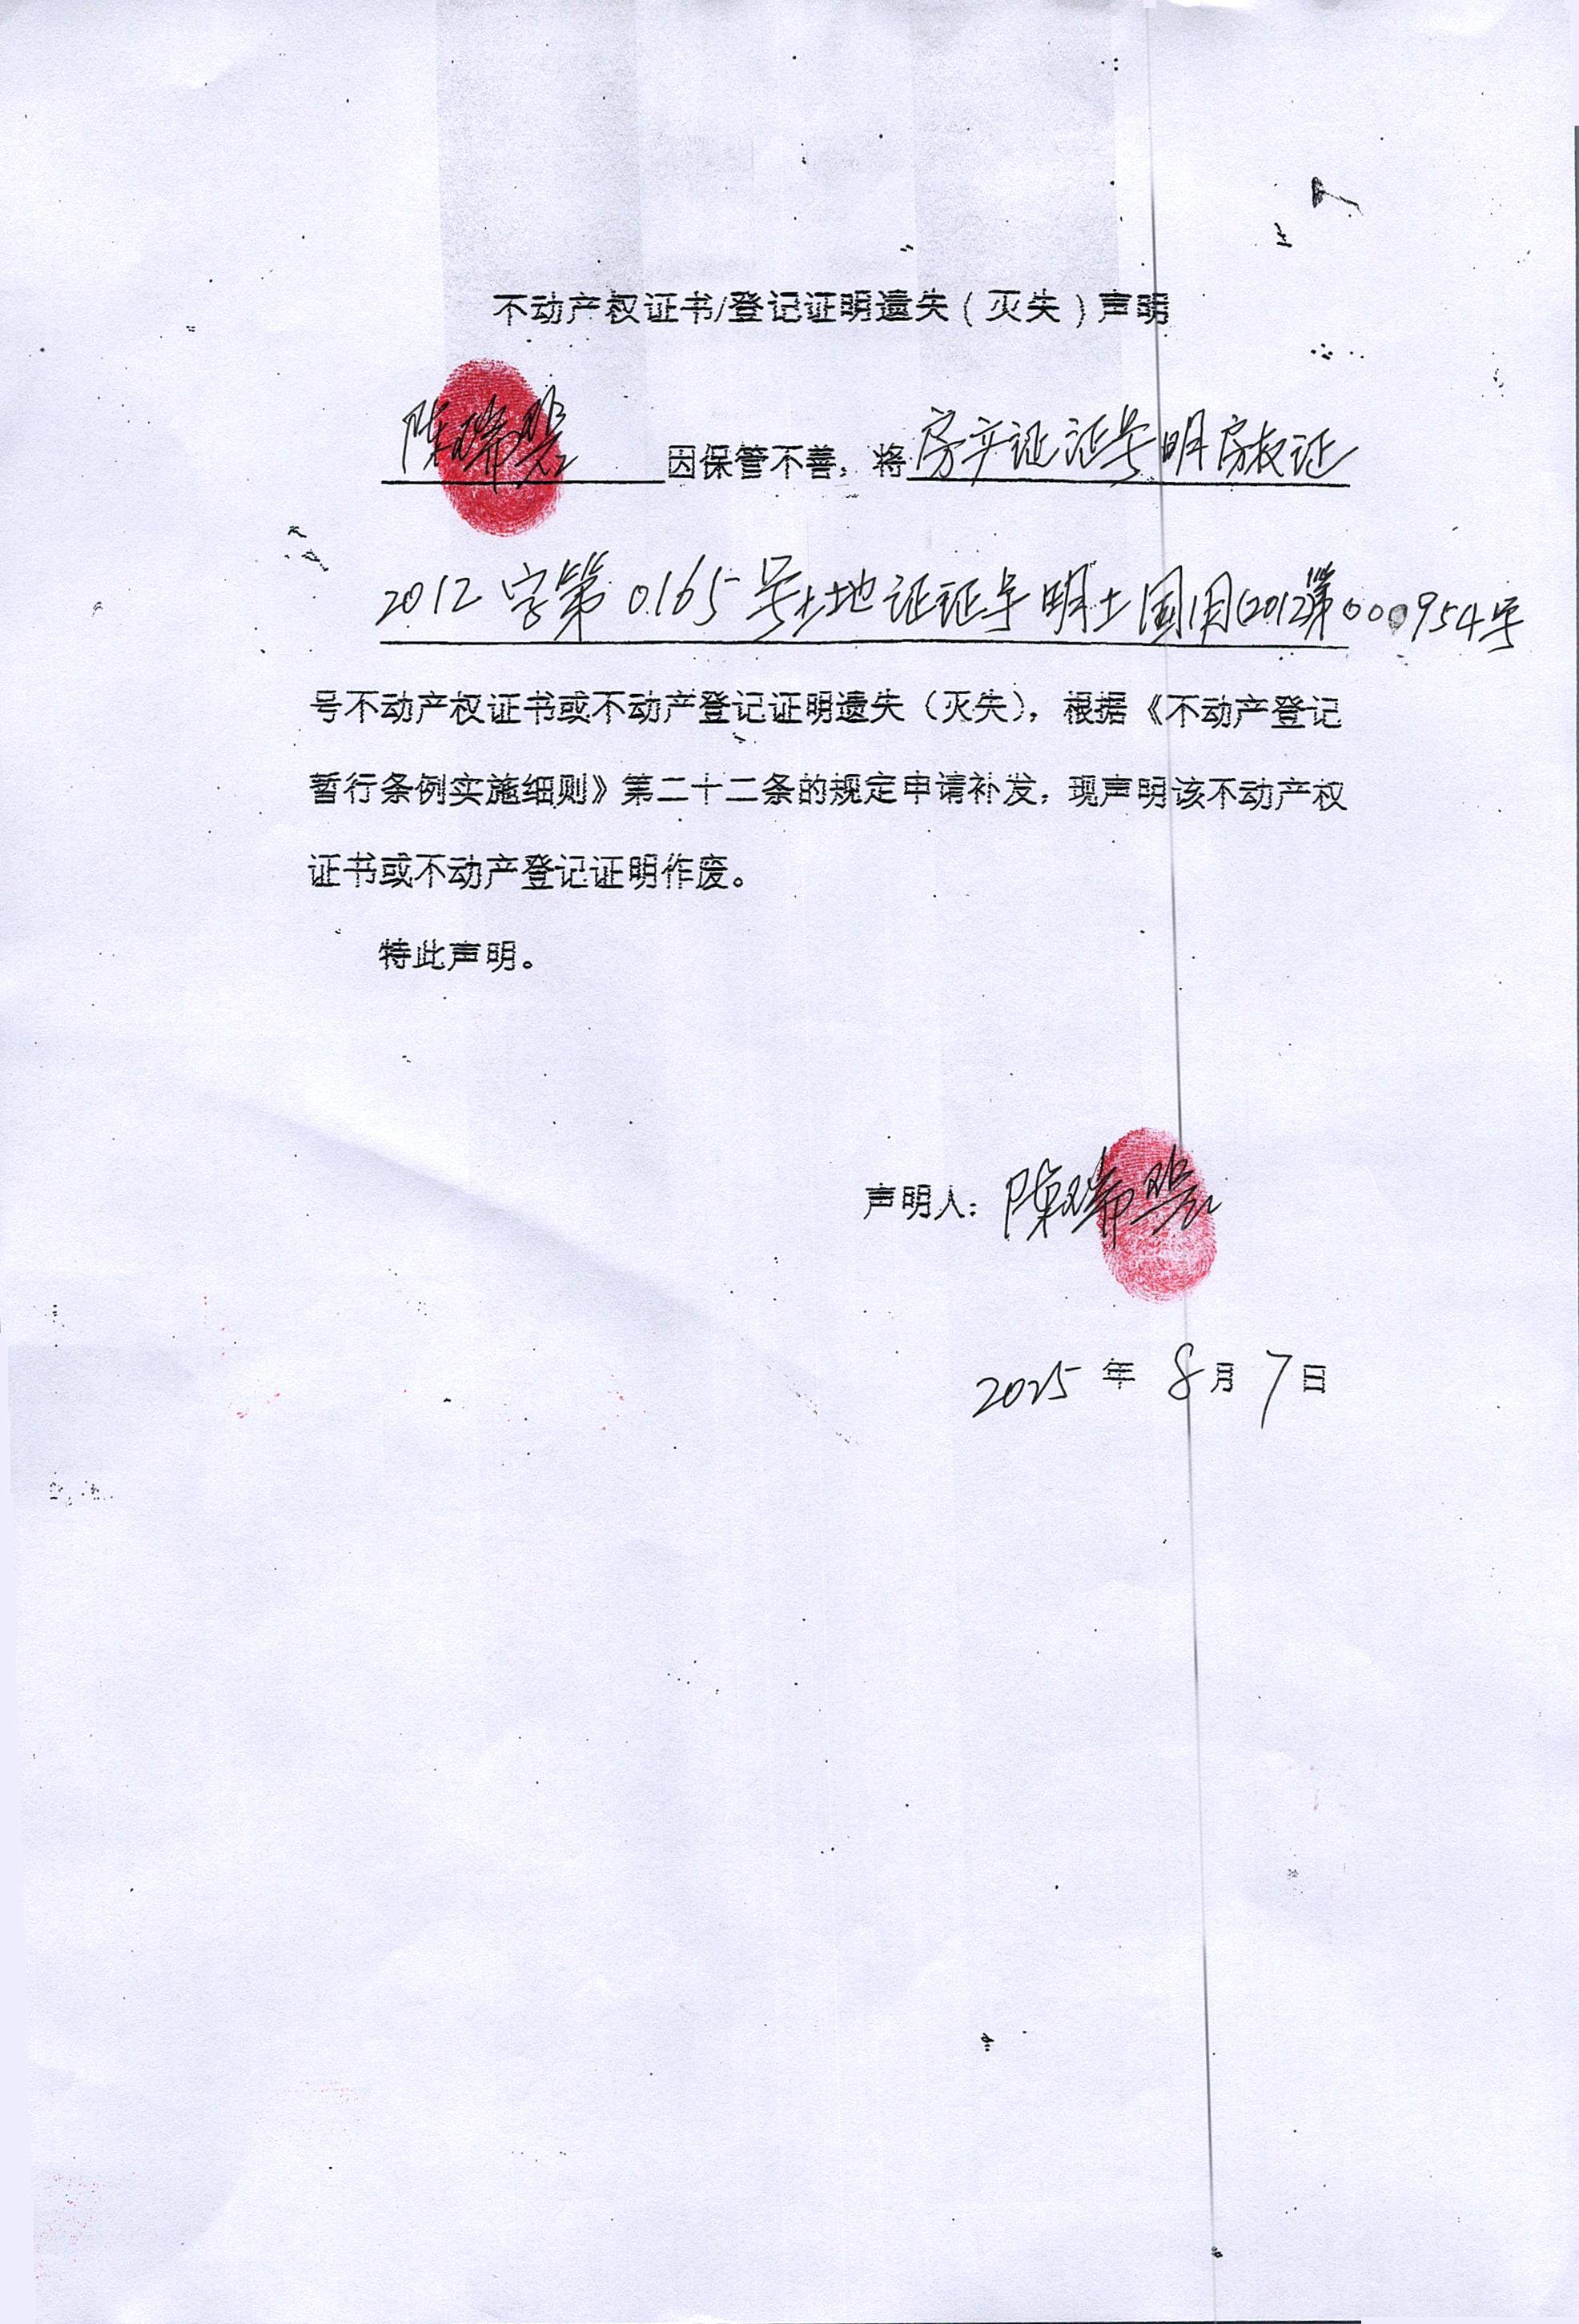 不动产权证书/登记证明遗失(灭失)声明
陈瑞 因保管不善，将房产证证号明房权证
2012字第0165号土地证证号明土国用(2012)第000954号
号不动产权证书或不动产登记证明遗失(灭失)，根据《不动产登记
暂行条例实施细则》第二十二条的规定申请补发，现声明该不动产权
证书或不动产登记证明作废。
特此声明。
声明人：陈瑞
2025年8月7日